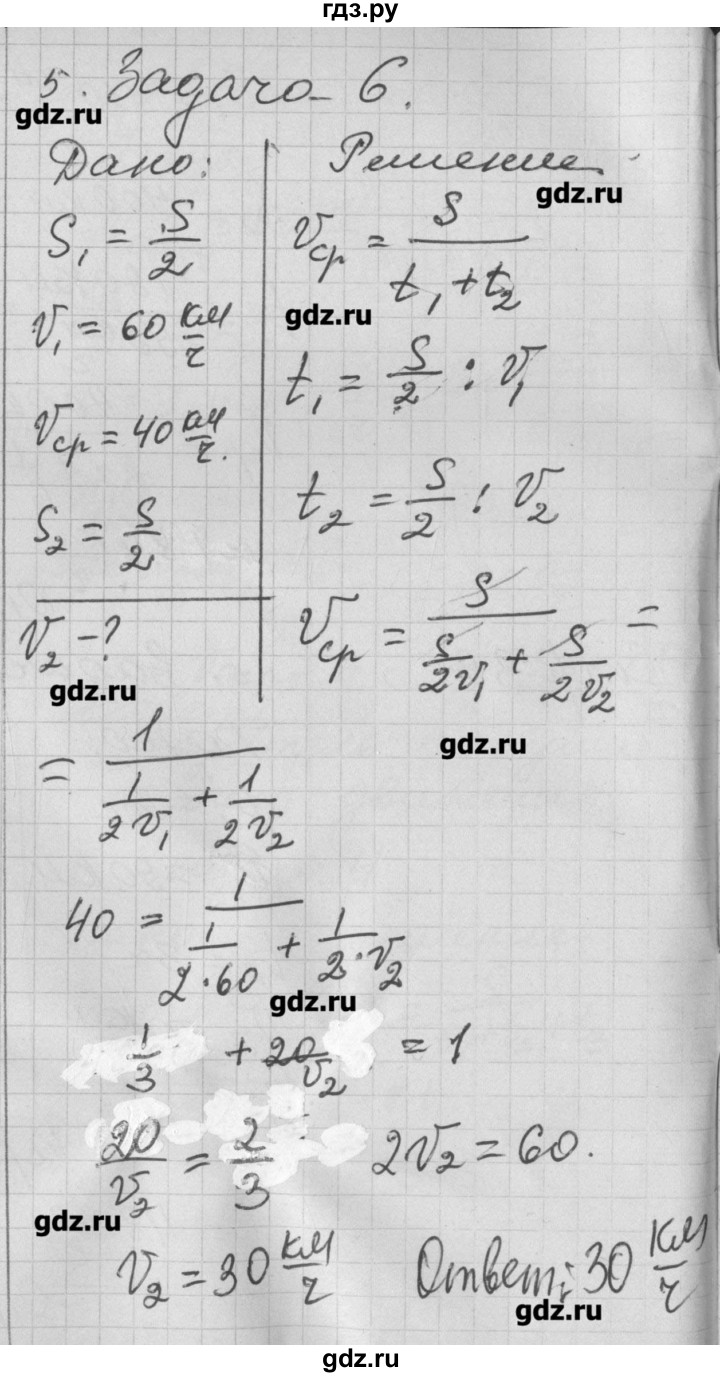 гдз.ру
5. Задача 6.
gdz.ru
Дано:
S₁ = S/2
V₁ = 60 км/ч
Vср = 40 км/ч.
S₂ = S/2
V₂ - ?
gdz.ru
Решение
gdz.ru
Vср = S/(t₁ + t₂)
gdz.ru
t₁ = S/2 : V₁
t₂ = S/2 : V₂
Vср = S/(S/2V₁ + S/2V₂) =
gdz.ru
= 1/(1/2V₁ + 1/2V₂)
40 = 1/(1/2·60 + 1/2·V₂)
gdz.ru
1/3 + 20/V₂ = 1
20/V₂ = 2/3 2V₂ = 60.
gdz.ru
V₂ = 30 км/ч Ответ: 30 км/ч
gdz.ru
gdz.ru